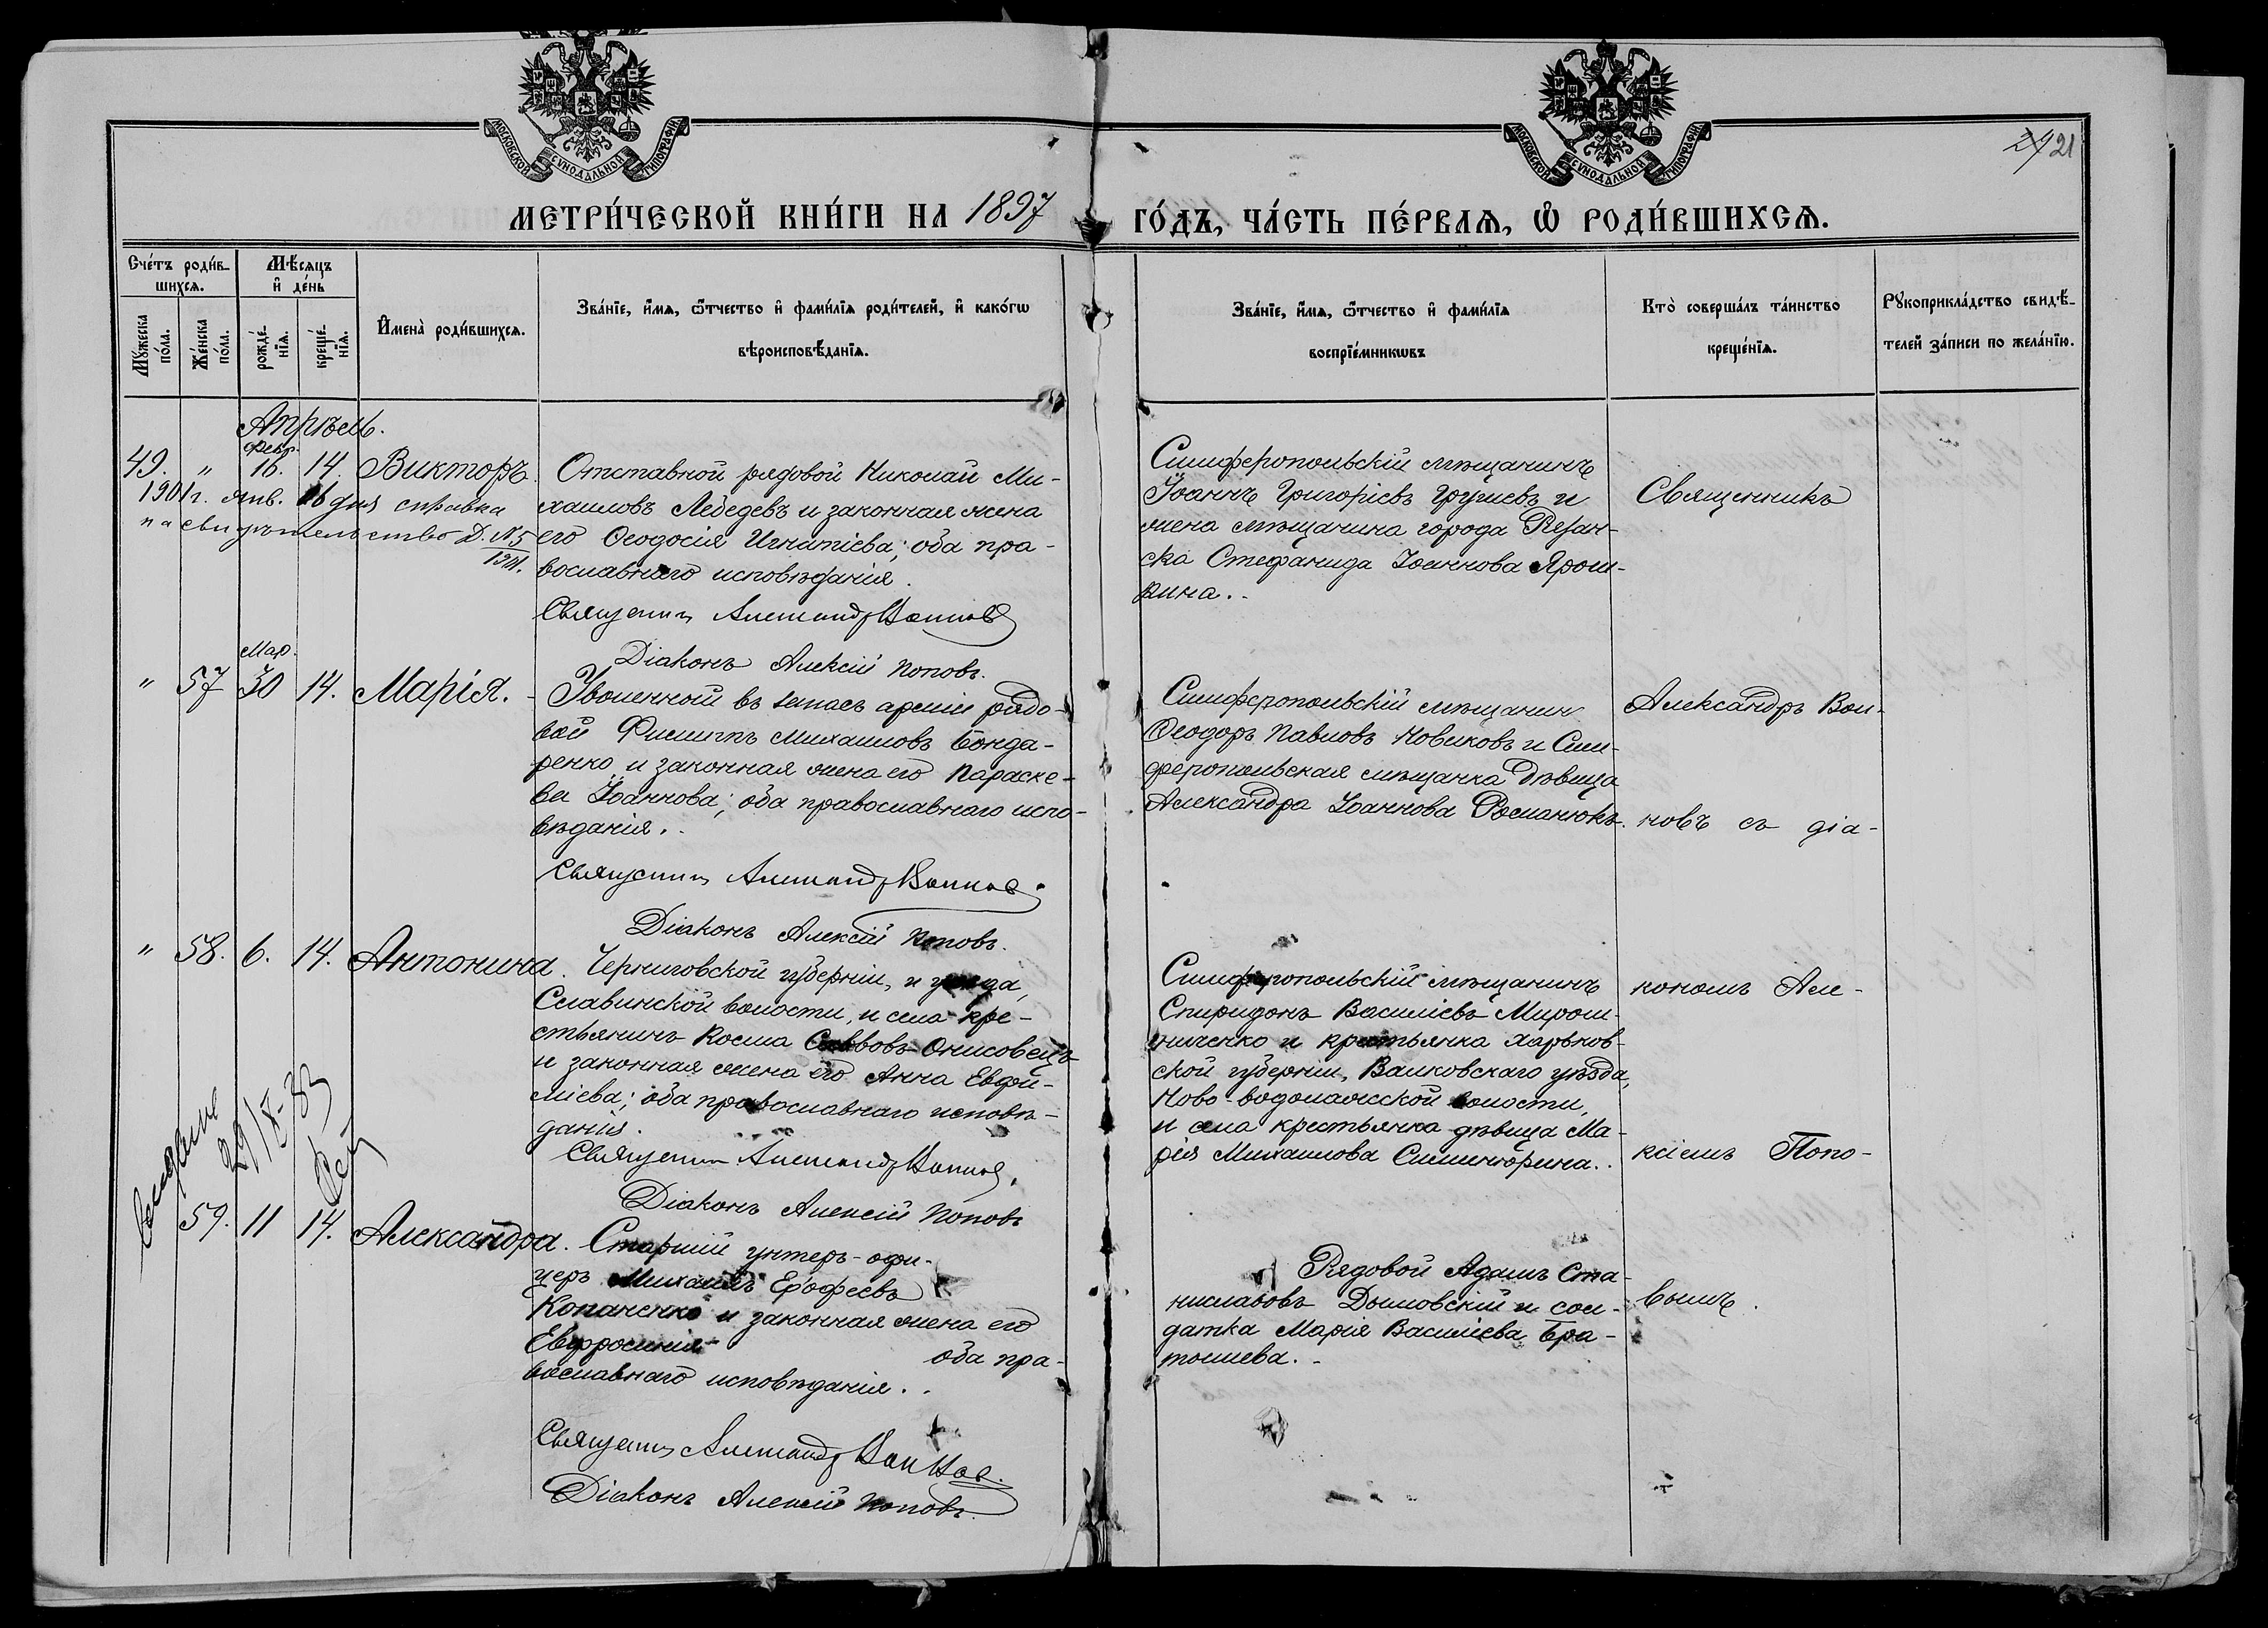 МОСКОВСКОЙ СѴНОДАЛЬНОЙ ТИПОГРАФІИ
МОСКОВСКОЙ СѴНОДАЛЬНОЙ ТИПОГРАФІИ
21
МЕТРИ́ЧЕСКОЙ КНИ́ГИ НА 1897
ГО́ДЪ, ЧА́СТЬ ПЕ́РВАѦ, Ѡ РОДИ́ВШИХСѦ.
Сче́тъ роди́в-
шихсѧ.
Мꙋжеска
по́ла.
Же́нска
по́ла.
Мѣ́сѧцъ
и҆ де́нь
рожде́-
нїѧ.
креще́-
нїѧ.
И҆мена̀ роди́вшихсѧ.
Зва́нїе, и҆́мѧ, ѻ҆́тчество и҆ фами́лїѧ роди́телей, и҆ како́гѡ
вѣроисповѣ́данїѧ.
Зва́нїе, и҆́мѧ, ѻ҆́тчество и҆ фами́лїѧ
воспрїе́мникѡвъ
Кто̀ соверша́лъ та́инство
креще́нїѧ.
Рꙋкоприкла́дство свидѣ́-
телей за́писи по жела́нїю.
Апрѣль.
февр.
49. " 16. 14. Викторъ.
1901г. янв. 16 дня справка
на свидѣтельство Д. №5
1901.
Отставной рядовой Николай Ми-
хаиловъ Лебедевъ и законная жена
его Ѳеодосія Игнатіева; оба пра-
вославнаго исповѣданія.
Священникъ Александръ
Діаконъ Алексій Поповъ.
Симферопольскій мѣщанинъ
Іоаннъ Григоріевъ и
жена мѣщанина города
ска Стефанида Іоаннова Ярош-
кина.
Священникъ
Мар.
" 57 30 14. Марія.
Уволенный въ запасъ арміи рядо-
вой Филиппъ Михаиловъ Бонда-
ренко и законная жена его Параске-
ва Іоаннова; оба православнаго испо-
вѣданія.
Священникъ Александръ
Діаконъ Алексій Поповъ.
Симферопольскій мѣщанин
Ѳеодоръ Павловъ Новиковъ и Сим-
феропольская мѣщанка дѣвица
Александра Іоаннова Романюкъ.
Александръ Вои-
новъ съ діа-
" 58. 6. 14. Антонина.
Черниговской губерніи, и уѣзда,
Славинской волости, и села кре-
стьянинъ Косма Саввовъ Онисовецъ
и законная жена его Анна Евфи-
міева; оба православнаго исповѣ-
данія.
Священникъ Александръ
Діаконъ Алексій Поповъ
Симферопольскій мѣщанинъ
Спиридонъ Василіевъ Мирош-
ниченко и крестьянка Харьков-
ской губерніи, Валковскаго уѣзда,
Ново-водолажской волости,
и села крестьянка дѣвица Ма-
рія Михаилова
кономъ Але-
ксіемъ Попо-
59. 11 14. Александра.
Старшій унтеръ-офи-
церъ Михаилъ Ерофеевъ
Копаненко и законная жена его
Евфросинія оба пра-
вославнаго исповѣданія.
Священникъ Александръ
Діаконъ Алексій Поповъ.
Рядовой Адамъ Ста-
ниславовъ Дымовскій и сол-
датка Марія Василіева Бра-
тышева.
вымъ.